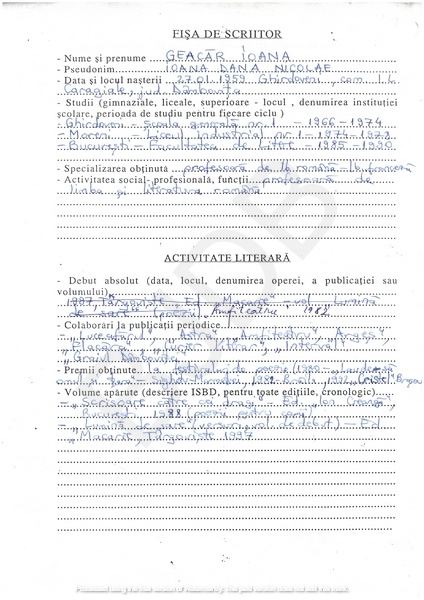 FIŞA DE SCRIITOR
- Nume şi prenume GEACĂR IOANA
- Pseudonim IOANA DANA NICOLAE
- Data şi locul naşterii 27.01.1959 Ghirdoveni, com. I.L.
Caragiale, jud. Dâmboviţa
- Studii (gimnaziale, liceale, superioare - locul , denumirea instituţiei
şcolare, perioada de studiu pentru fiecare ciclu )
- Ghirdoveni - Şcoala generală nr. 1 - 1966 - 1974
- Moreni - Liceul Industrial nr. 1 - 1974 - 1978
- Bucureşti - Facultatea de Litere - 1985 - 1990
- Specializarea obţinută profesoară de lb. română - lb. franceză
- Activitatea social- profesională, funcţii profesoară de
limba şi literatura română
ACTIVITATE LITERARĂ
- Debut absolut (data, locul, denumirea operei, a publicaţiei sau
volumului)
1997, Târgovişte, Ed. „Macarie" - vol. „Lumină
de sare" (poezii) „Amfiteatru", 1982
- Colaborări la publicaţii periodice
- „Luceafărul", „Astra", „Amfiteatru", „Argeş",
„Flacăra", „Interval",
„Graiul Dâmboviţa"
- Premii obţinute la festivaluri de poezie
- Volume apărute (descriere ISBD, pentru toate ediţiile, cronologic)
- „Scrisoare către cei dragi" - Ed. „Ion Creangă",
Bucureşti, 1988 (poezii pentru copii)
- „Lumină de sare" (versuri, vol. de debut) - Ed.
„Macarie", Târgovişte 1997